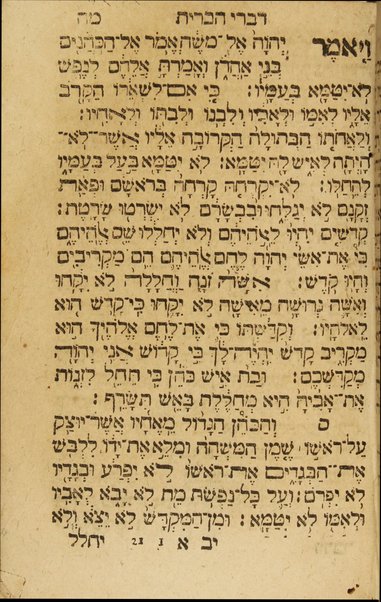 דברי הברית מה
וַיֹּאמֶר יְהוָֹה אֶל־מֹשֶׁה אֱמֹר אֶל־הַכֹּהֲנִים
בְּנֵי אַהֲרֹן וְאָמַרְתָּ אֲלֵהֶם לְנֶפֶשׁ
לֹא־יִטַּמָּא בְּעַמָּיו׃ כִּי אִם־לִשְׁאֵרוֹ הַקָּרֹב
אֵלָיו לְאִמּוֹ וּלְאָבִיו וְלִבְנוֹ וּלְבִתּוֹ וּלְאָחִיו׃
וְלַאֲחֹתוֹ הַבְּתוּלָה הַקְּרוֹבָה אֵלָיו אֲשֶׁר־לֹא־
הָיְתָה לְאִישׁ לָהּ יִטַּמָּא׃ לֹא יִטַּמָּא בַּעַל בְּעַמָּיו
לְהֵחַלּוֹ׃ לֹא־יִקְרְחֻה קָרְחָה בְּרֹאשָׁם וּפְאַת
זְקָנָם לֹא יְגַלֵּחוּ וּבִבְשָׂרָם לֹא יִשְׂרְטוּ שָׂרָטֶת׃
קְדֹשִׁים יִהְיוּ לֵאלֹהֵיהֶם וְלֹא יְחַלְּלוּ שֵׁם אֱלֹהֵיהֶם
כִּי אֶת־אִשֵּׁי יְהוָֹה לֶחֶם אֱלֹהֵיהֶם הֵם מַקְרִיבִם
וְהָיוּ קֹדֶשׁ׃ אִשָּׁה זֹנָה וַחֲלָלָה לֹא יִקָּחוּ
וְאִשָּׁה גְּרוּשָׁה מֵאִישָׁהּ לֹא יִקָּחוּ כִּי־קָדֹשׁ הוּא
לֵאלֹהָיו׃ וְקִדַּשְׁתּוֹ כִּי אֶת־לֶחֶם אֱלֹהֶיךָ הוּא
מַקְרִיב קָדֹשׁ יִהְיֶה־לָּךְ כִּי קָדוֹשׁ אֲנִי יְהוָֹה
מְקַדִּשְׁכֶם׃ וּבַת אִישׁ כֹּהֵן כִּי תֵחֵל לִזְנוֹת
אֶת־אָבִיהָ הִיא מְחַלֶּלֶת בָּאֵשׁ תִּשָּׂרֵף׃
ס וְהַכֹּהֵן הַגָּדוֹל מֵאֶחָיו אֲשֶׁר־יוּצַק
עַל־רֹאשׁוֹ שֶׁמֶן הַמִּשְׁחָה וּמִלֵּא אֶת־יָדוֹ לִלְבֹּשׁ
אֶת־הַבְּגָדִים אֶת־רֹאשׁוֹ לֹא יִפְרָע וּבְגָדָיו
לֹא יִפְרֹם׃ וְעַל כָּל־נַפְשֹׁת מֵת לֹא יָבֹא לְאָבִיו
וּלְאִמּוֹ לֹא יִטַּמָּא׃ וּמִן־הַמִּקְדָּשׁ לֹא יֵצֵא וְלֹא
יב א יחלל